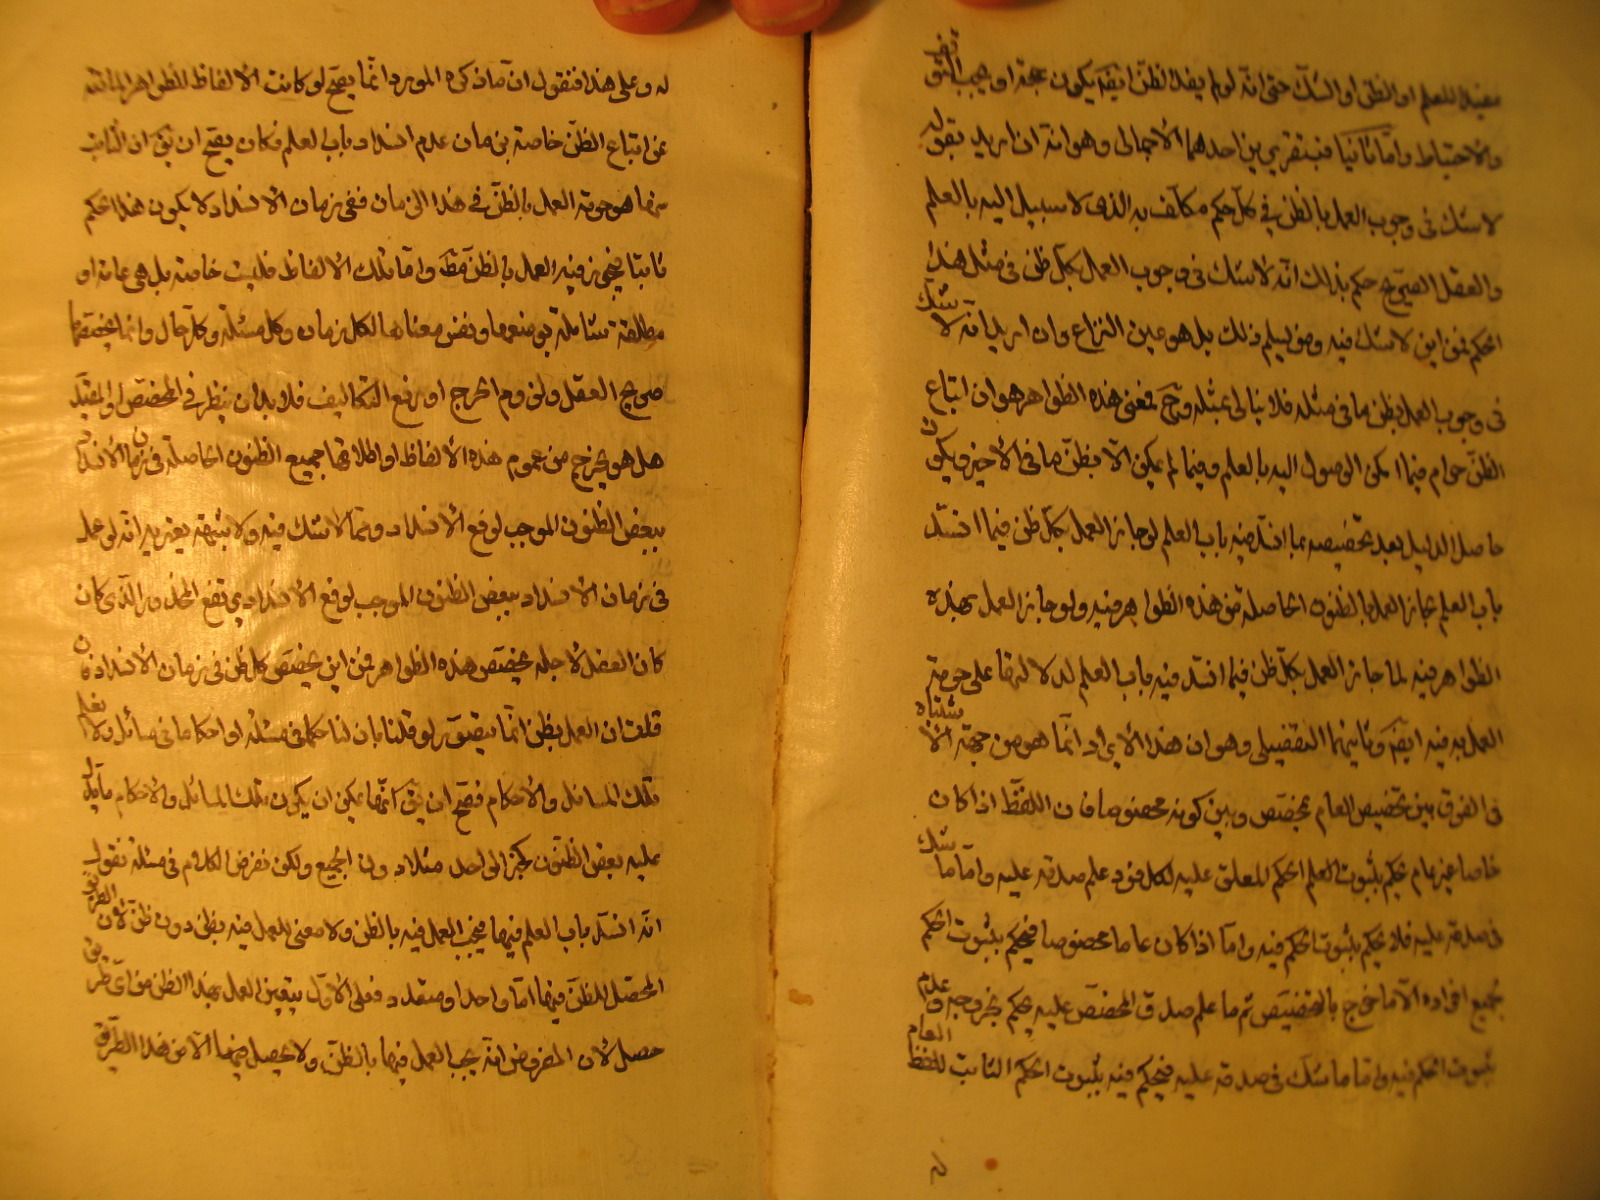 مفيدا للعلم او الظن او الشك حتى انه لو لم يفد الظن ايضه يكون حجة او يجب التوقف
والاحتياط واما ثانيا فبتقريرين احدهما الاجمالى وهو انه ان اريد بقوله
لا شك فى وجوب العمل بالظن فى كل حكم مكلف به الذى لا سبيل اليه بالعلم
والعقل الصريح حكم بذلك انه لا شك فى وجوب العمل بكل ظن فى مثل هذا
الحكم فمن اين لا شك فيه ومن يسلم ذلك بل هو عين النزاع وان اريد انه لا شك
فى وجوب العمل بظن ما فى مثله فلا يبالى بمثله وح فمعنى هذه الظواهر هو ان اتباع
الظن حرام فيما امكن الوصول اليه بالعلم وفيما لم يمكن الا بظن ما فى الاخير ويكون
حاصل الدليل بعد تخصيصه بما انسد فيه باب العلم لو جاز العمل بكل ظن فيما انسد
باب العلم لجاز العمل بالظنون الحاصلة من هذه الظواهر فيه ولو جاز العمل بهذه
الظواهر فيه لما جاز العمل بكل ظن فيما انسد فيه باب العلم لدلالتها على حرمة
العمل به فيه ايضه وثانيهما التفصيلى وهو ان هذا الايراد انما هو من جهة الاشتباه
فى الفرق بين تخصيص العام بمخصص وبين كونه مخصوصا فان اللفظ اذا كان
خاصا غير عام نحكم بثبوت الحكم المعلق عليه لكل فرد علم صدقه عليه واما ما شك
فى صدقه عليه فلا نحكم بثبوت الحكم فيه واما اذا كان عاما مخصوصا فيحكم بثبوت الحكم
لجميع افراده الا ما خرج بالتخصيص ثم ما علم صدق المخصص عليه يحكم بخروجه وعدم
ثبوت الحكم فيه واما ما شك فى صدقه عليه فيحكم فيه بثبوت الحكم الثابت للفظ العام
له وعلى هذا فنقول ان ما ذكره المورد انما يصح لو كانت الالفاظ للظواهر المانعة
عن اتباع الظن خاصة بزمان عدم انسداد باب العلم فكان يصح ان يق ان الثابت
منها هو حرمة العمل بالظن فى هذا الزمان ففى زمان الانسداد لا يكون هذا الحكم
ثابتا فيجوز فيه العمل بالظن مطلقا واما تلك الالفاظ فليست خاصة بل هى عامة او
مطلقة شاملة بعمومها ونفس معناها لكل زمان وكل مسئلة وكل حال وانما يخصصها
صريح العقل ولزوم الحرج او رفع التكاليف فلابد ان ينظر فى المخصص او المقيد
هل هو يخرج من عموم هذه الالفاظ او اطلاقها جميع الظنون الحاصلة فى زمان الانسداد
بعض الظنون الموجب لرفع الانسداد ومما لا شك فيه ولا شبهة يعتريه انه لو عمل
فى زمان الانسداد ببعض الظنون الموجب لرفع الانسداد يرتفع المحذور الذى كان
كان العقل لاجله يخصص هذه الظواهر فمن اين يخصص كل ظن فى زمان الانسداد فان
قلت ان العمل بظن انما يتصور لو قلنا بان لنا حكما فى مسئلة او احكاما فى مسائل ولا نعلم
تلك المسائل والاحكام فصح ان يق انها يمكن ان يكون تلك المسائل والاحكام ما يدل
عليه بعض الظنون كخبر الواحد مثلا دون الجميع ولكن نفرض الكلام فى مسئلة نقول
انه انسد باب العلم فيها فيجب العمل فيه بالظن ولا معنى للعمل فيه بظن دون ظن لان الطريق
المحصل للظن فيها اما واحد او متعدد فعلى الاول يتعين العمل بهذا الظن من اى طريق
حصل لان المفروض انه يجب العمل فيها بالظن ولا يحصل فيها الا من هذا الطريق